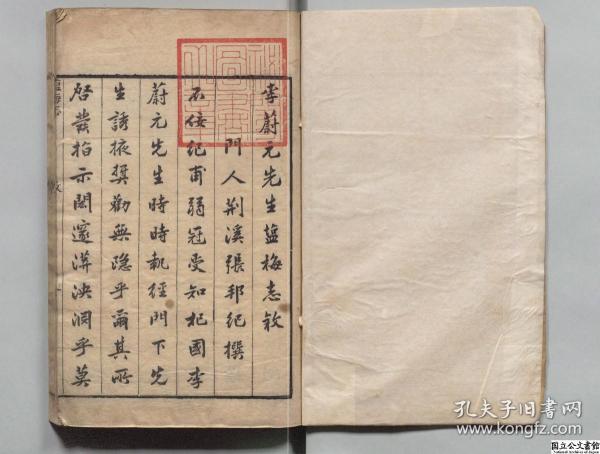 李蔚元先生鹽梅志敘
門人荆溪張邦紀撰
不佞紀甫弱冠受知杞國李
蔚元先生時時執經門下先
生誘掖奬勸無隐乎爾其所
啓發指示閎邃溔泱洞乎莫
孔夫子旧书网
www.kongfz.com
国立公文書館
National Archives of Japan